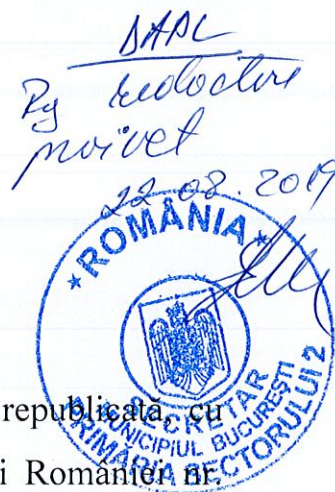 DAPL
Rg redactare
proiect
22.08.2019
* ROMÂNIA *
SECRETAR
MUNICIPIUL BUCUREȘTI
PRIMĂRIA SECTORULUI 2
republicată, cu
i României nr.